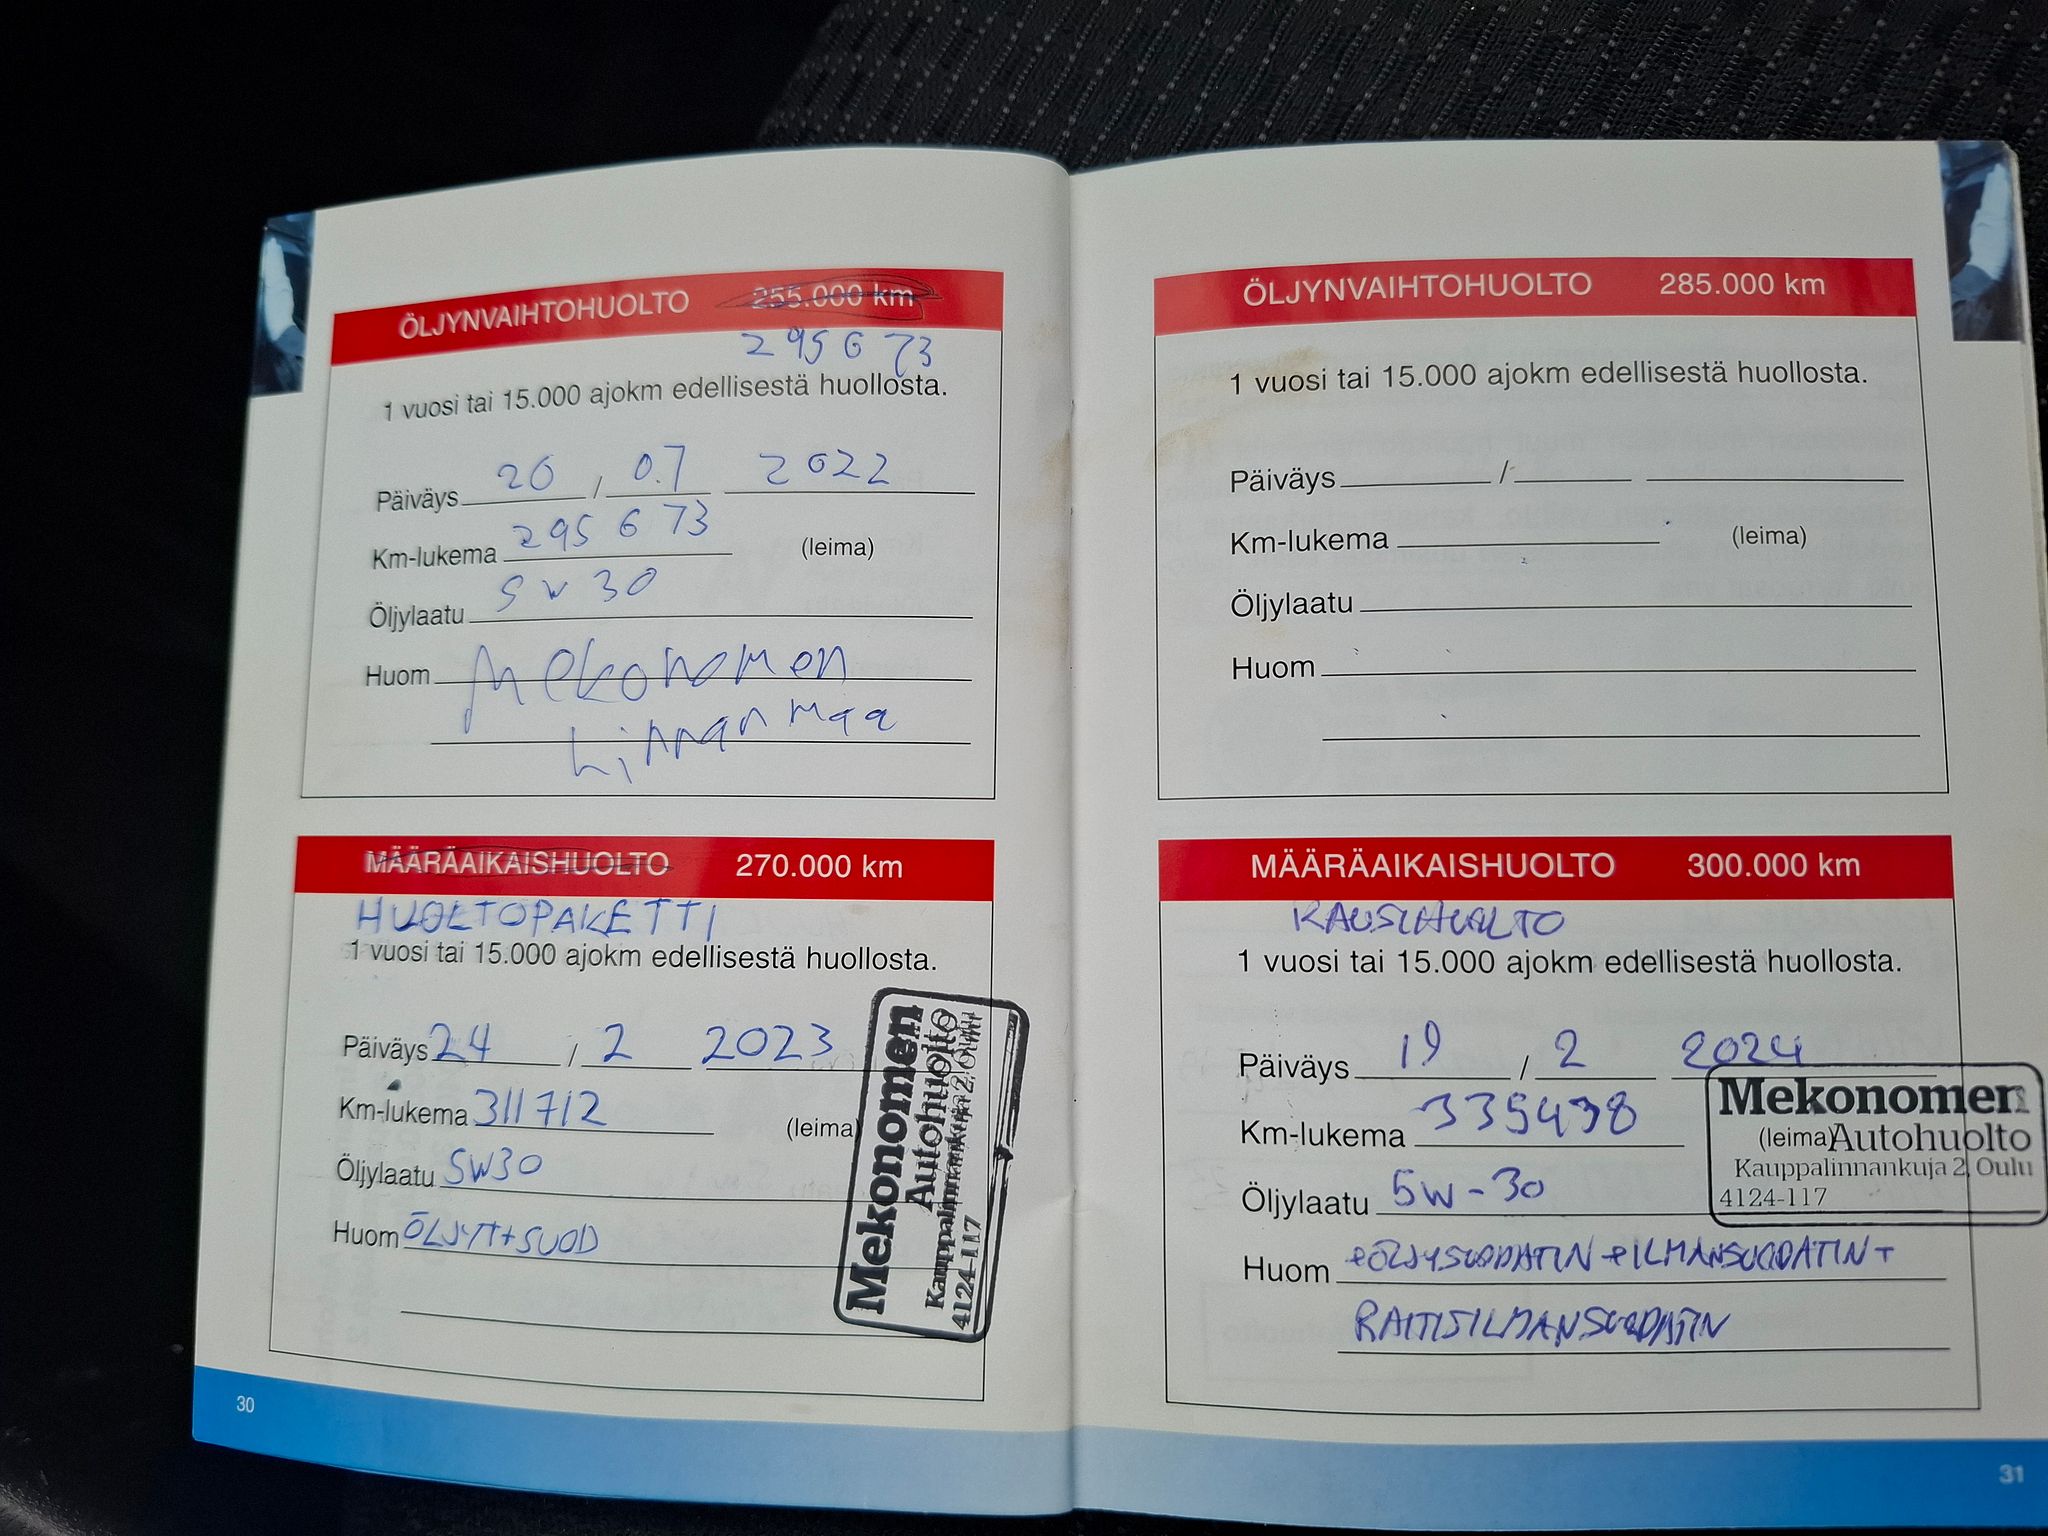 ÖLJYNVAIHTOHUOLTO 255.000 km
295 673
1 vuosi tai 15.000 ajokm edellisestä huollosta.
Päiväys 20 / 07 2022
Km-lukema 295 673 (leima)
Öljylaatu 5W30
Huom Mekonomen
Linnanmaa
MÄÄRÄAIKAISHUOLTO 270.000 km
HUOLTOPAKETTI
1 vuosi tai 15.000 ajokm edellisestä huollosta.
Päiväys 24 / 2 2023
Km-lukema 311712 (leima)
Öljylaatu 5W30
Huom ÖLJYT+SUOD
Mekonomen
Autohuolto
Kauppalinnankuja 2, Oulu
4124-117
30
ÖLJYNVAIHTOHUOLTO 285.000 km
1 vuosi tai 15.000 ajokm edellisestä huollosta.
Päiväys / 
Km-lukema (leima)
Öljylaatu
Huom
MÄÄRÄAIKAISHUOLTO 300.000 km
KAUSIHUOLTO
1 vuosi tai 15.000 ajokm edellisestä huollosta.
Päiväys 19 / 2 2024
Km-lukema 335498 (leima)
Öljylaatu 5W-30
Huom +ÖLJYSUODATIN +ILMANSUODATIN+
RAITISILMANSUODATIN
Mekonomen
Autohuolto
Kauppalinnankuja 2, Oulu
4124-117
31